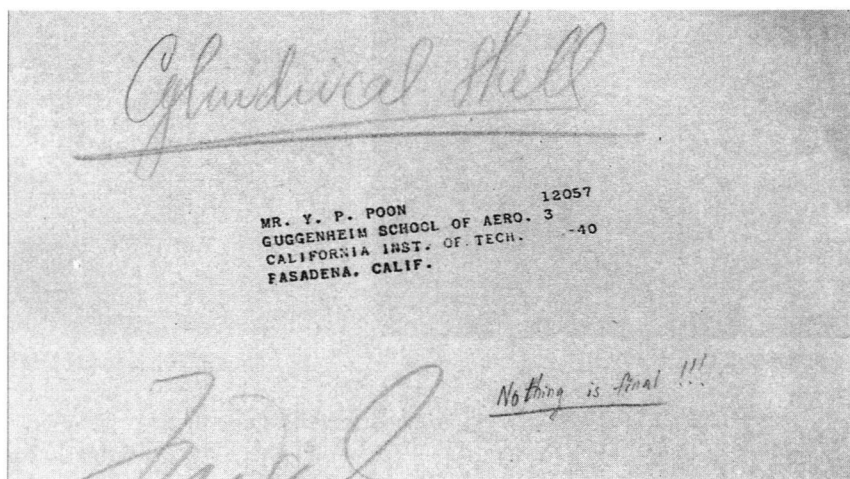 Cylindrical Shell
MR. Y. P. POON 12057
GUGGENHEIM SCHOOL OF AERO. 3
CALIFORNIA INST. OF TECH. -40
PASADENA. CALIF.
Nothing is final !!!
Final